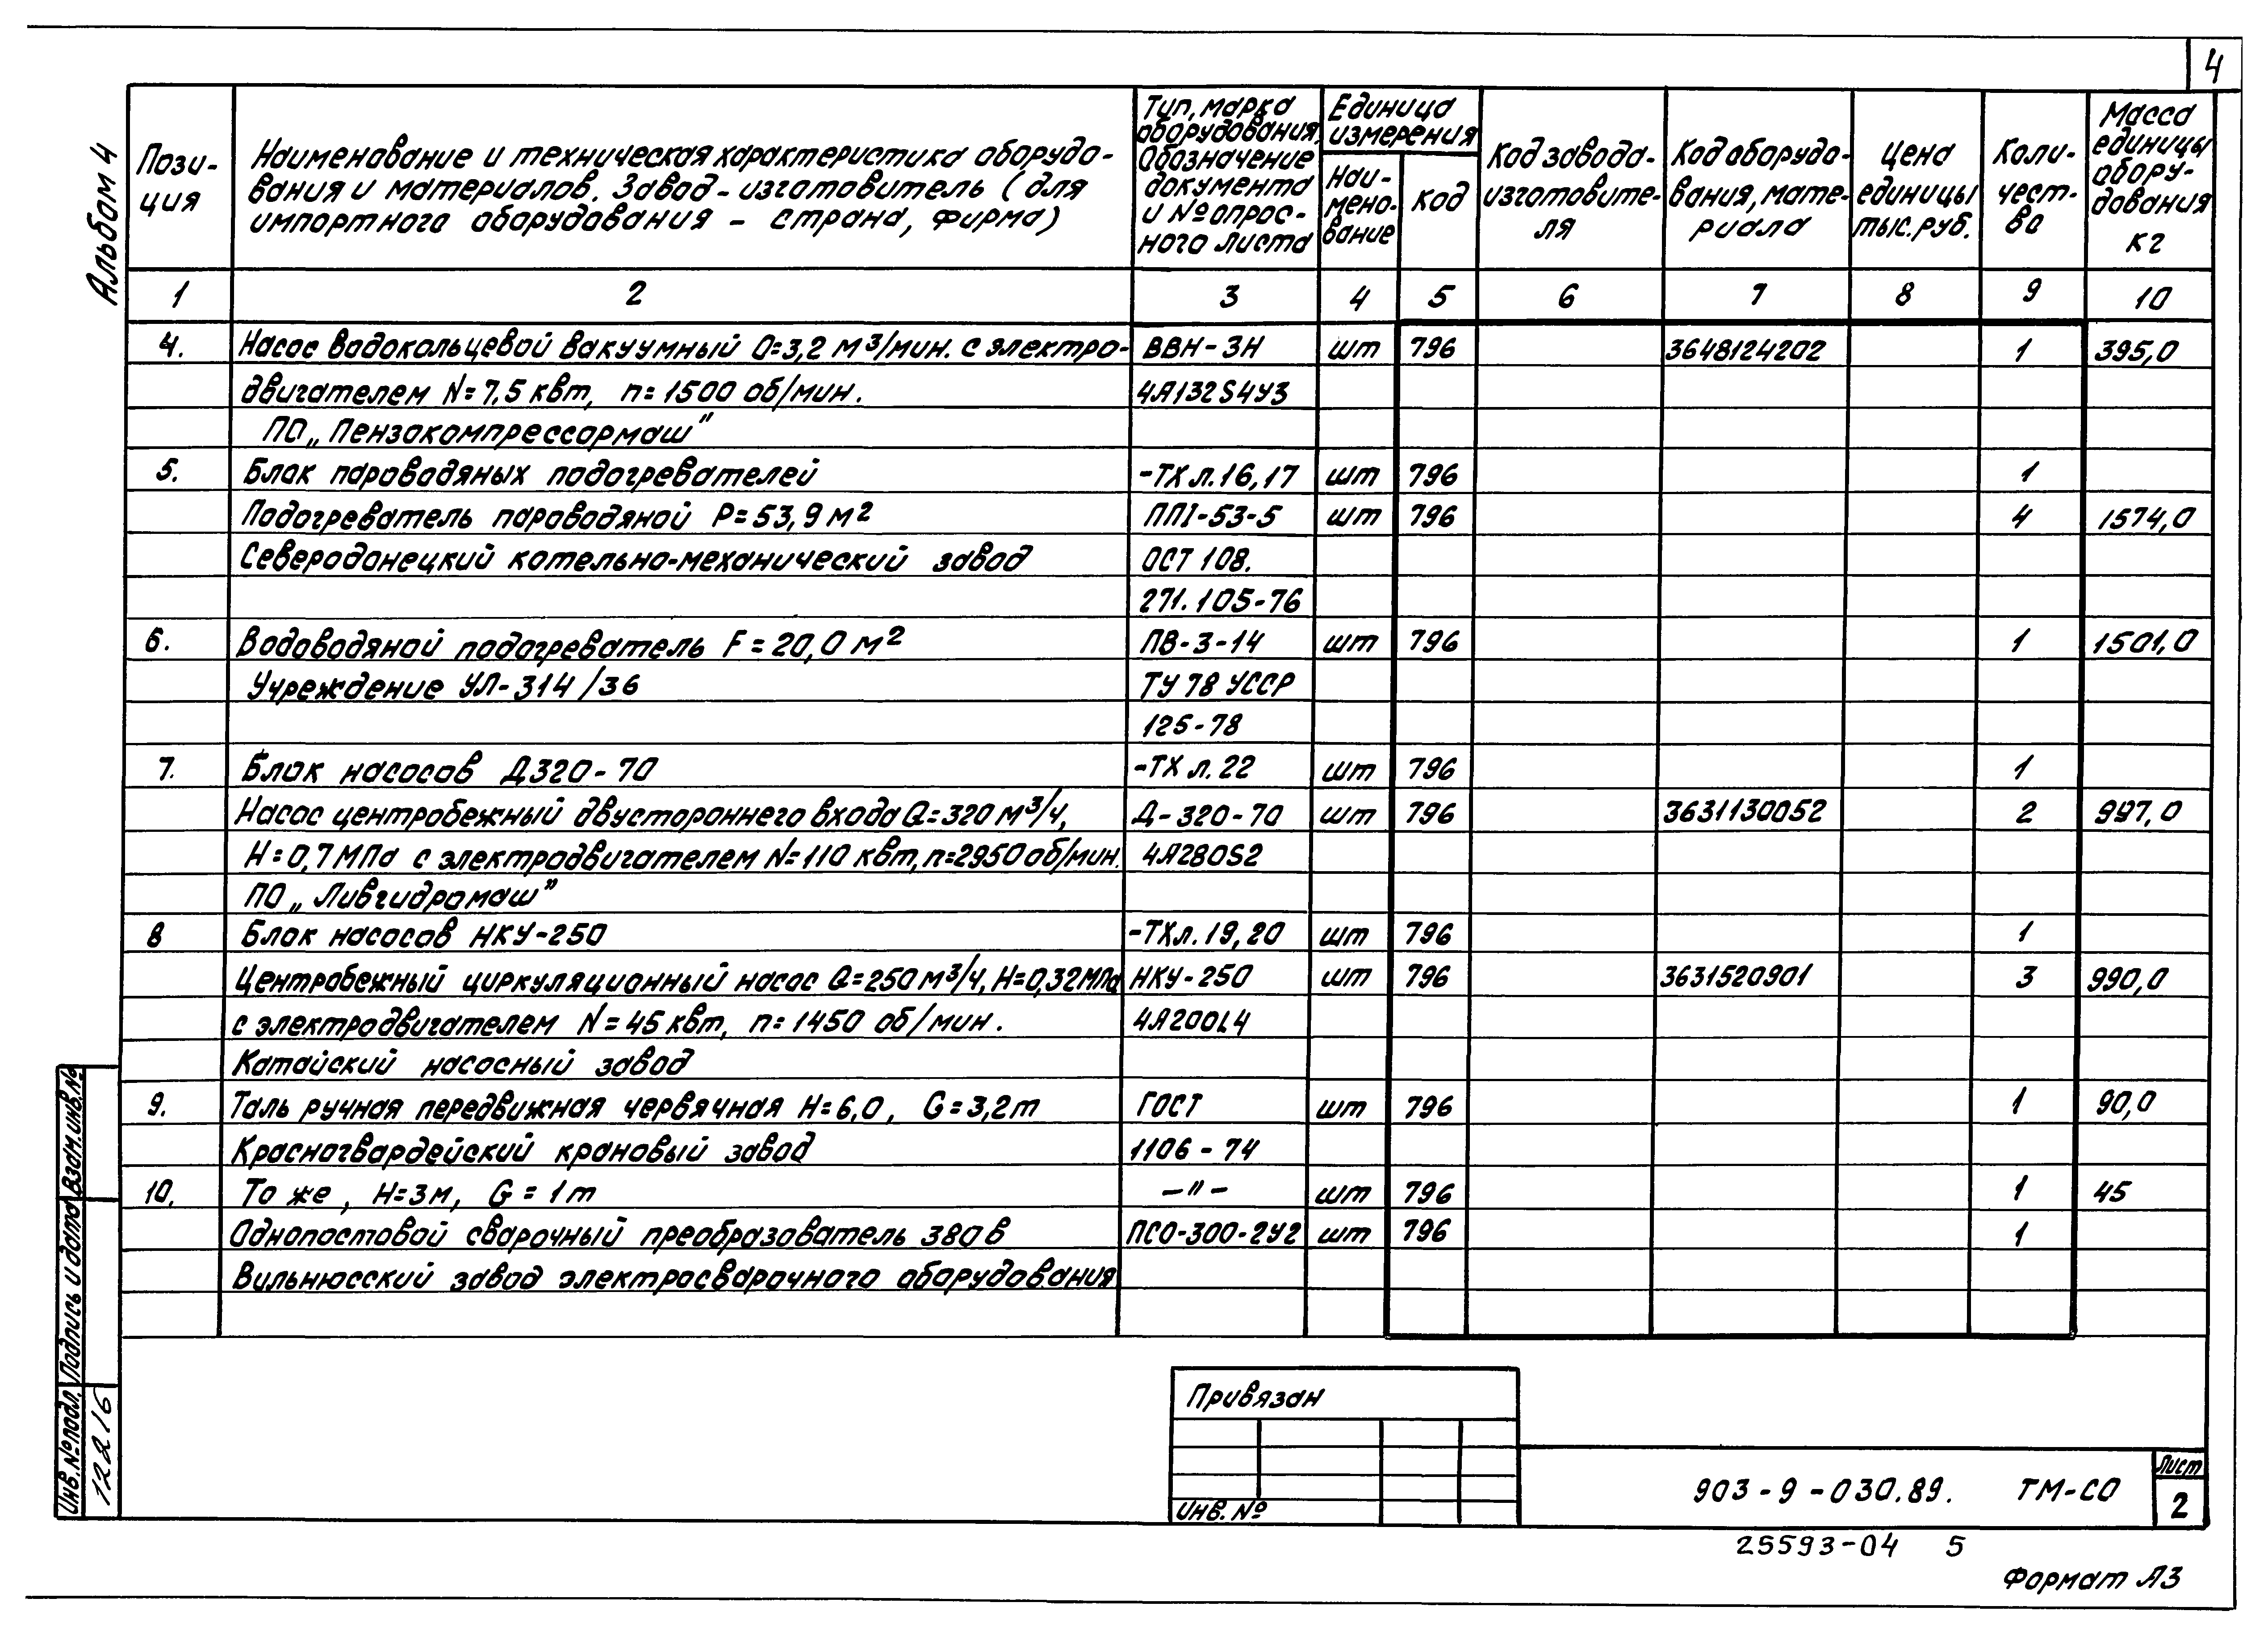 4
Альбом 4
Пози-
ция
Наименование и техническая характеристика оборудо-
вания и материалов. Завод-изготовитель (для
импортного оборудования - страна, фирма)
Тип, марка
оборудования.
Обозначение
документа
и № опрос-
ного листа
Единица
измерения
Наи-
мено-
вание
код
Код завода-
изготовите-
ля
Код оборудо-
вания, мате-
риала
Цена
единицы
тыс.руб.
Коли-
чест-
во
Масса
единицы
обору-
дования
кг
1 2 3 4 5 6 7 8 9 10
4. Насос водокольцевой вакуумный Q=3,2 м³/мин. с электро- ВВН-3Н шт 796 3648124202 1 395,0
двигателем N=7,5 квт, n=1500 об/мин. 4А132S4У3
ПО „Пензокомпрессормаш"
5. Блок пароводяных подогревателей -ТХ л.16,17 шт 796 1
Подогреватель пароводяной Р=53,9 м² ПП1-53-5 шт 796 4 1574,0
Северодонецкий котельно-механический завод ОСТ 108.
271.105-76
6. Водоводяной подогреватель F=20,0 м² ПВ-3-14 шт 796 1 1501,0
Учреждение УЛ-314/36 ТУ 78 УССР
125-78
7. Блок насосов Д320-70 -ТХ л.22 шт 796 1
Насос центробежный двустороннего входа Q=320 м³/ч, Д-320-70 шт 796 3631130052 2 997,0
Н=0,7МПа с электродвигателем N=110 квт, n=2950 об/мин. 4А280S2
ПО „Ливгидромаш"
8 Блок насосов НКУ-250 -ТХл.19,20 шт 796 1
Центробежный циркуляционный насос Q=250 м³/ч, Н=0,32МПа НКУ-250 шт 796 3631520901 3 990,0
с электродвигателем N=45 квт, n=1450 об/мин. 4А200L4
Катайский насосный завод
9. Таль ручная передвижная червячная Н=6,0, G=3,2т ГОСТ шт 796 1 90,0
Красногвардейский крановый завод 1106-74
10. То же, Н=3м, G=1т -"- шт 796 1 45
Однопостовой сварочный преобразователь 380в ПСО-300-2У2 шт 796 1
Вильнюсский завод электросварочного оборудования
Взам.инв.№
Подпись и дата
Инв.№подл.
12216
Привязан
Инв.№
903-9-030.89. ТМ-СО
Лист
2
25593-04 5
Формат А3